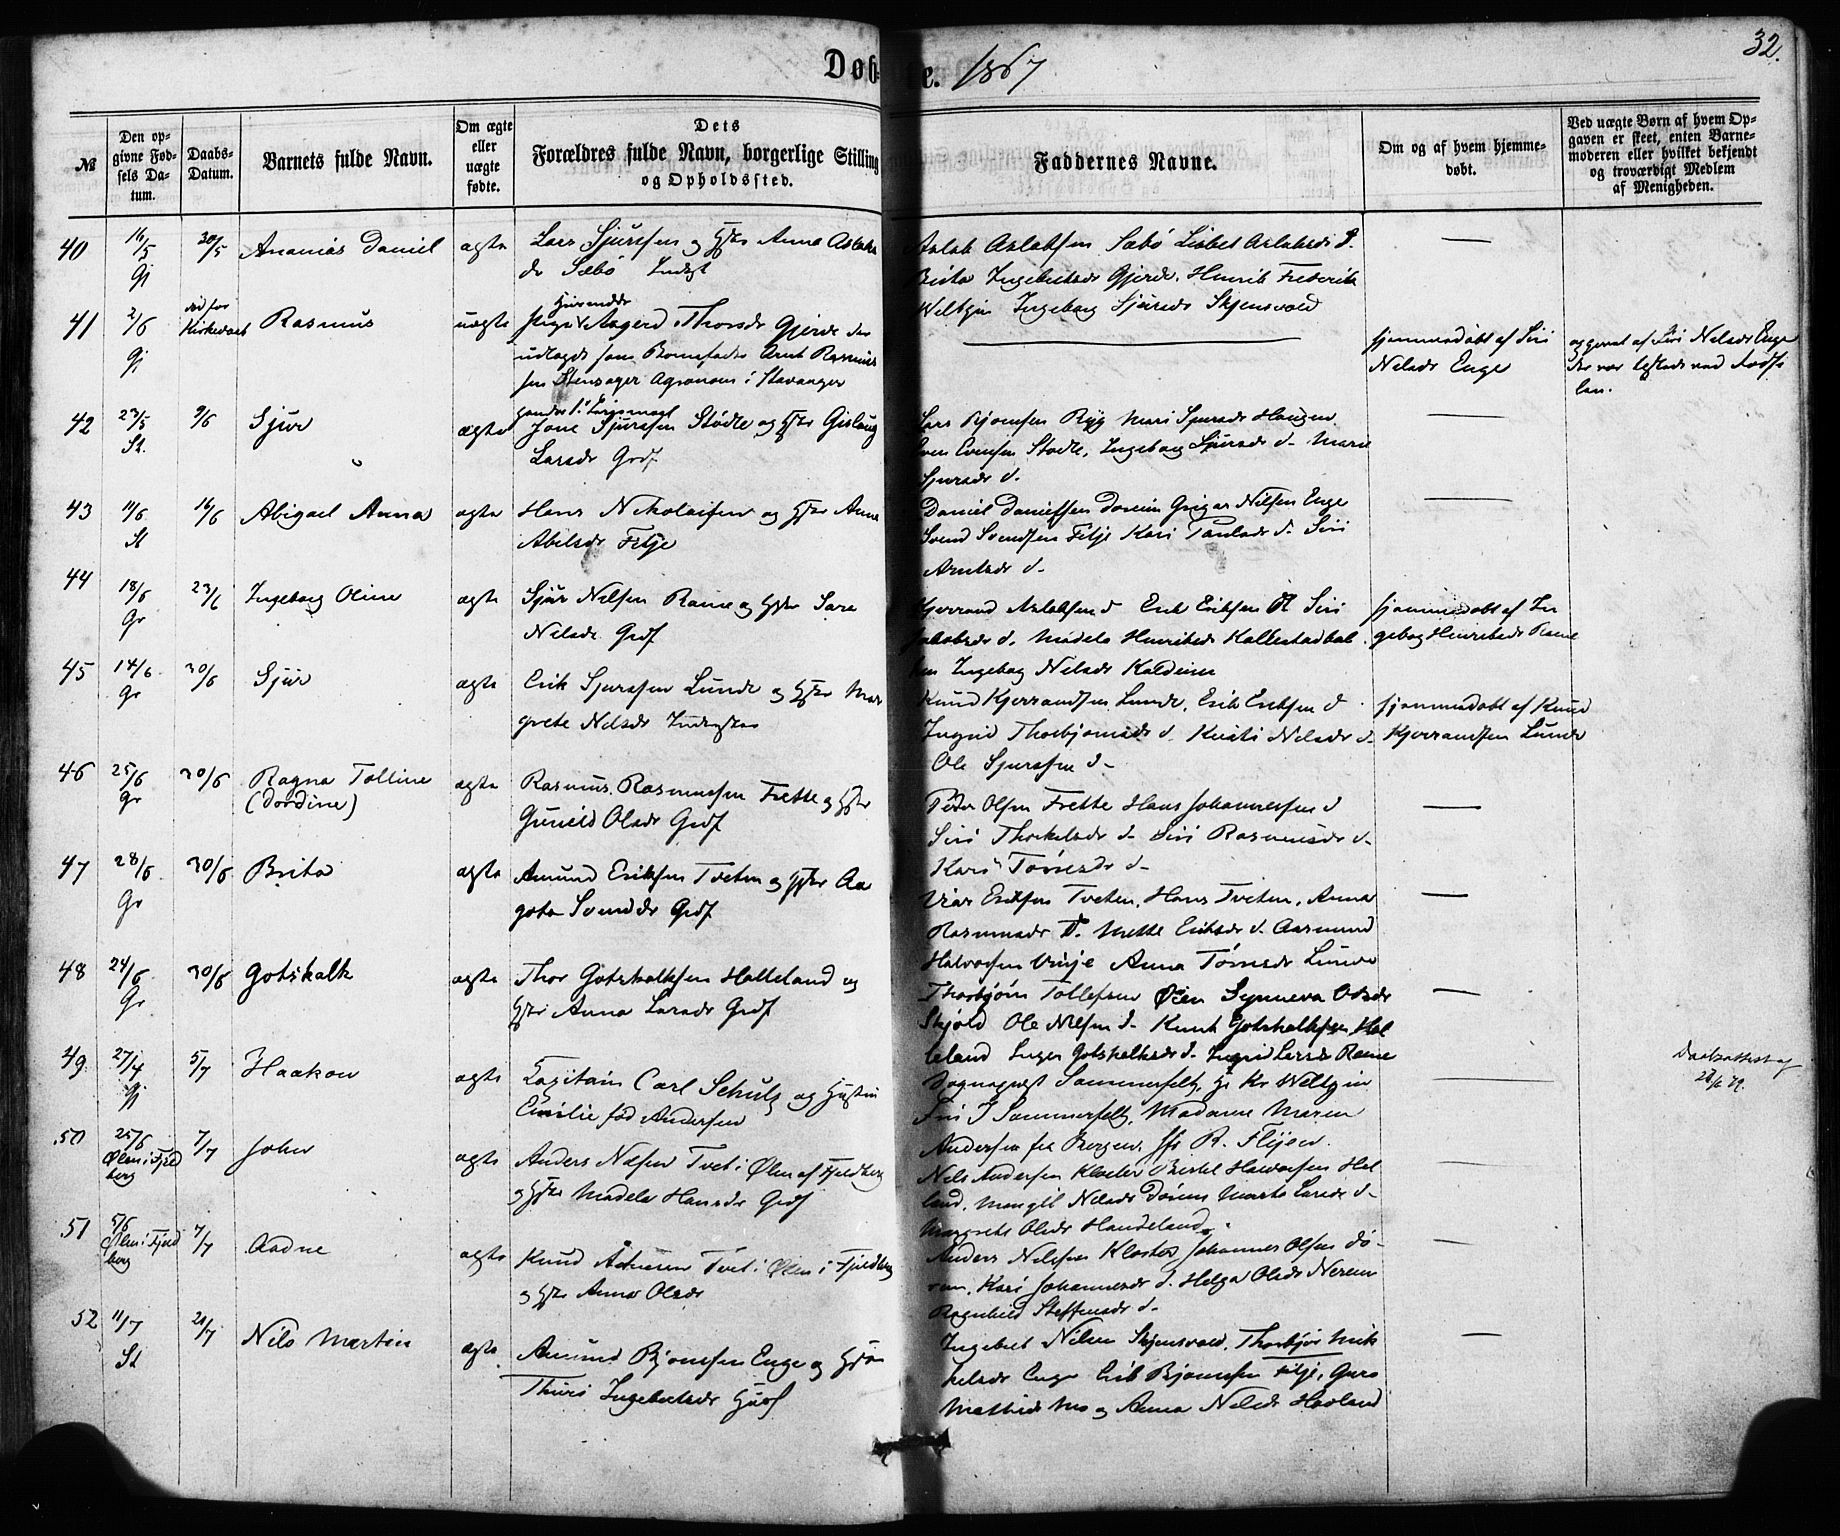 Døbte. 1867
32.
№
Den opgivne Fødsels Datum.
Daabs-Datum.
Barnets fulde Navn.
Om ægte eller uægte fødte.
Dets Forældres fulde Navn, borgerlige Stilling og Opholdssted.
Faddernes Navne.
Om og af hvem hjemmedøbt.
Ved uægte Børn af hvem Opgaven er skeet, enten Barnemoderen eller hvilket bekjendt og troværdigt Medlem af Menigheden.
40 16/5 Gj 30/5 Ananias Daniel ægte Lars Sjursen og Hst Anna Aslaks
dr Sæbø Inderst
Aslak Aslaksen Sæbø Lisbet Aslaksdr d.
Brita Ingebretsdr Gjerde, Henrik Frederik
Weltzin Ingeborg Sjursdr Skjensvold
41 2/6 Gj død før Kirkedaab Rasmus uægte Pige Aagerd Thorsdr Gjerde den
udlagde som Barnefader Arnt Rasmus
sen Stensager Agronom i Stavanger
hjemmedøbt af Siri
Nelsdr Enge
opgivet af Siri Nelsdr Enge
der var tilstede ved Fødse
len.
42 23/5 St. 9/6 Sjur ægte Jone Sjursen Stødle og Hst Gislaug
Larsdr Grdf
Lars Bjørnsen Ryg Mari Sjursdr Haugen
Sven Evensen Stødle, Ingeborg Sjursdr d- Mari
Sjursdr d.
43 11/6 St 16/6 Abigael Anna ægte Hans Nikolaisen og Hst Anna
Abelsdr Fitje
Daniel Danielsen Grigar Nilsen Enge
Svend Svendsen Fitje Kari Paulsdr d- Siri
Arntsdr d-
44 18/6 Gr 23/6 Ingeborg Oline ægte Sjur Nelsen Rame og Hst Sara
Nelsdr Grdf
Kjerrand Aslaksen d Erik Eriksen d Siri
Jakobsdr d. Madela Henriksdr Kallestadbak
ken Ingeborg Nelsdr
hjemmedøbt af In
geborg Henriksdr Rame
45 14/6 Gr 30/6 Sjur ægte Erik Sjursen Lunde og Hst Mar
grete Nelsdr Inderster
Knud Kjerrandsen Lunde, Erik Eriksen d
Ingrid Thorbjørnsdr d. Kristi Nelsdr d-
Ole Sjursen d-
hjemmedøbt af Knud
Kjerrandsen Lunde
46 25/6 Gr 30/6 Ragna Tolline
(Dordine) ægte Rasmus Rasmussen Frette og Hst
Gunild Olsdr Grdf
Peder Olsen Frette Hans Johannessen d
Siri Thorkelsdr d- Siri Rasmusdr d-
Kari Tønnesdr d-
47 28/6 Gr 30/6 Brita ægte Amund Eriksen Tveten og Hst Aa
gota Svendsdr Grdf
Vier Eriksen Tveten, Hans Tveten, Anna
Rasmusdr d. Mette Eriksdr d. Aasmund
Halvorsen Vinje Anna Tønnesdr Lunde
48 24/6 Gr 30/6 Gotskalk ægte Thor Gotskalksen Halleland og
Hst Anna Larsdr Grdf
Thorbjørn Tollefsen Øien Synneva Olsdr
Skjold Ole Nelsen d- Knut Gotskalksen Hal
leland Inger Gotskalksdr d. Ingri Larsdr Rame
49 27/4 Gj 5/7 Haakon ægte Capitain Carl Schulz og Hustru
Emilie fød Andersen
Sogneprest Sommerfelt, Hr Kr Weltzin
Fru I Sommerfelt, Madame Maren
Andersen fra Bergen, Jfr B. Flijen.
Daabsattest af
28/6 79.
50 25/6 Ølen i Fjeld
berg 7/7 John ægte Anders Nelsen Tvet i Ølen af Fjeldberg
og Hst Madela Hansdr Grdf
Nels Andersen Kloster Bertel Halvorsen Hel
land, Mangel Nelsdr Døvens Marta Larsdr d-
Margrete Olsdr Handeland
51 5/6 Ølen i Fjeld
berg 7/7 Aadne ægte Knud Adnesen Tvet i Ølen i Fjeldberg
og Hst Anna Olsdr
Anders Nelsen Kloster Johannes Olsen Dø-
ven, Kari Johannesdr d. Helga Olsdr Nerem
Ragnhild Steffensdr d-
52 11/7 St 21/7 Nils Martin ægte Amund Bjørnsen Enge og Hst
Thuri Ingebretsdr Husf
Ingebret Nilsen Skjensvold, Thorbjør Mik
kelsdr Enge Erik Bjørnsen Fitje, Guro
Mathisdr Mo og Anna Nelsdr Havland